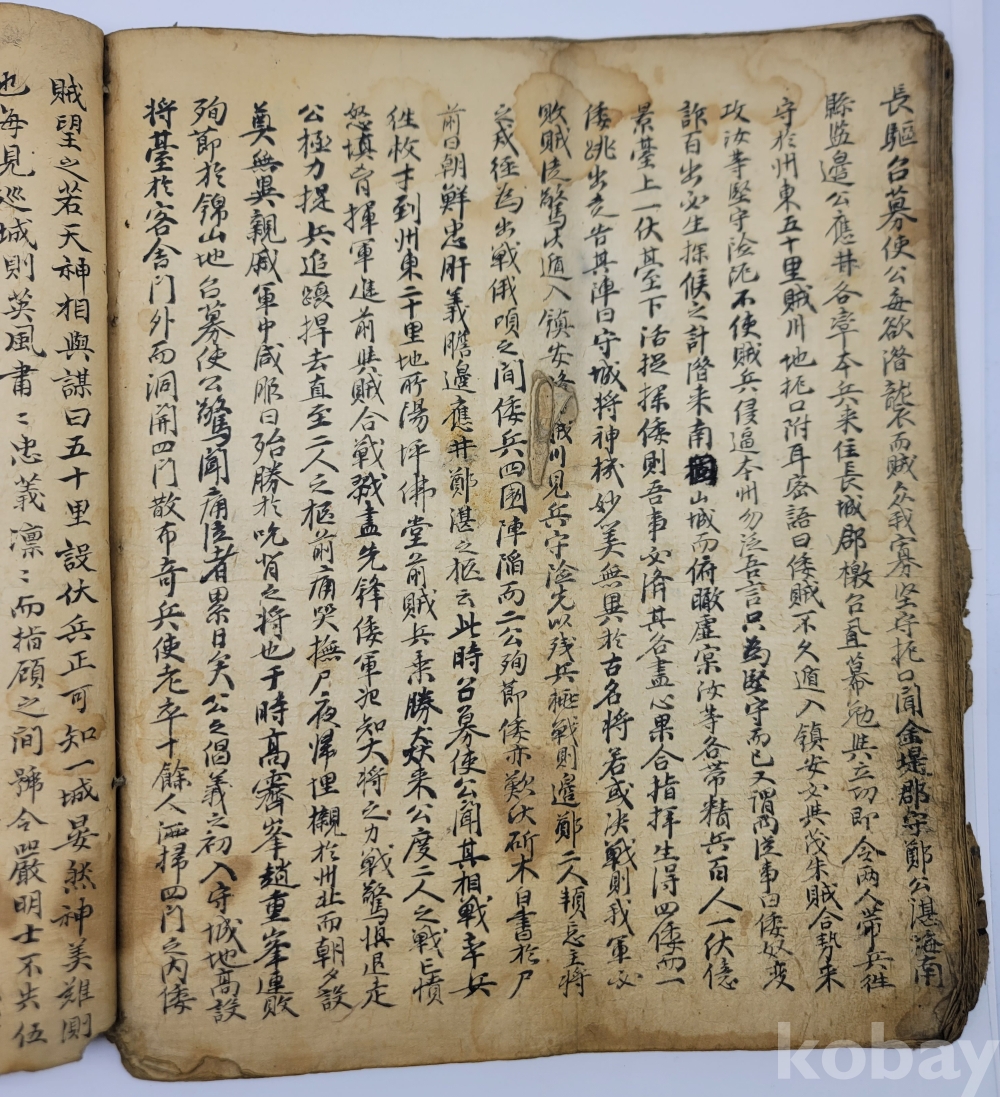 長驅召募使公每欲潛襲而賊众我寡堅守扼口聞金堤郡守鄭公湛海南
縣監邊公應井各率本兵来住長城郡檄召直幕勉共立功即令两人带兵往
守於州東五十里賊川地扼口附耳密語曰倭賊不久遁入鎮安必與茂朱賊合勢来
攻汝等堅守險阨不使賊兵侵逼本州勿泛吾言只為堅守而已又謂從事曰倭奴変
詐百出必生探候之計潛来南固山城而俯瞰虛宲汝等各带精兵百人一伏億
景臺上一伏其下活捉探倭則吾事必濟其各盡心果合指揮生得四倭而一
倭跳出走告其陣曰守城将神機妙美無異於古名将若或决戰則我軍必
敗賊徒驚伏遁入鎮安 賊川見兵守險先以残兵挑戰則邊鄭二人頓忘主将
之戒經為出戰俄頃之間倭兵四圍陣陷而二公殉節倭亦歎伏斫木白書於尸
前曰朝鮮忠肝義膽邊應井鄭湛之柩云此時召募使公聞其相戰率兵
徃救才到州東二十里地所湯坪佛堂前賊兵乘勝猋来公度二人之戰亡憤
怒填胷揮軍進前與賊合戰戮盡先鋒倭軍知大将之力戰驚惧退走
公極力提兵追躡捍去直至二人之柩前痛哭撫尸夜帰埋櫬於州北而朝夕設
奠無異親戚軍中咸服曰殆勝於吮肖之将也于時高霽峯趙重峯連敗
殉節於錦山地召募使公驚聞痛泣者累日矣公之倡義之初入守城地高設
将臺於客舍門外而洞開四門散布奇兵使老卒十餘人洒掃四門之内倭
賊望之若天神相與謀曰五十里設伏兵正可知一城晏然神美難測
也每見巡城則英風肅〻忠義凛〻而指顧之間號令嚴明士不失伍
kobay